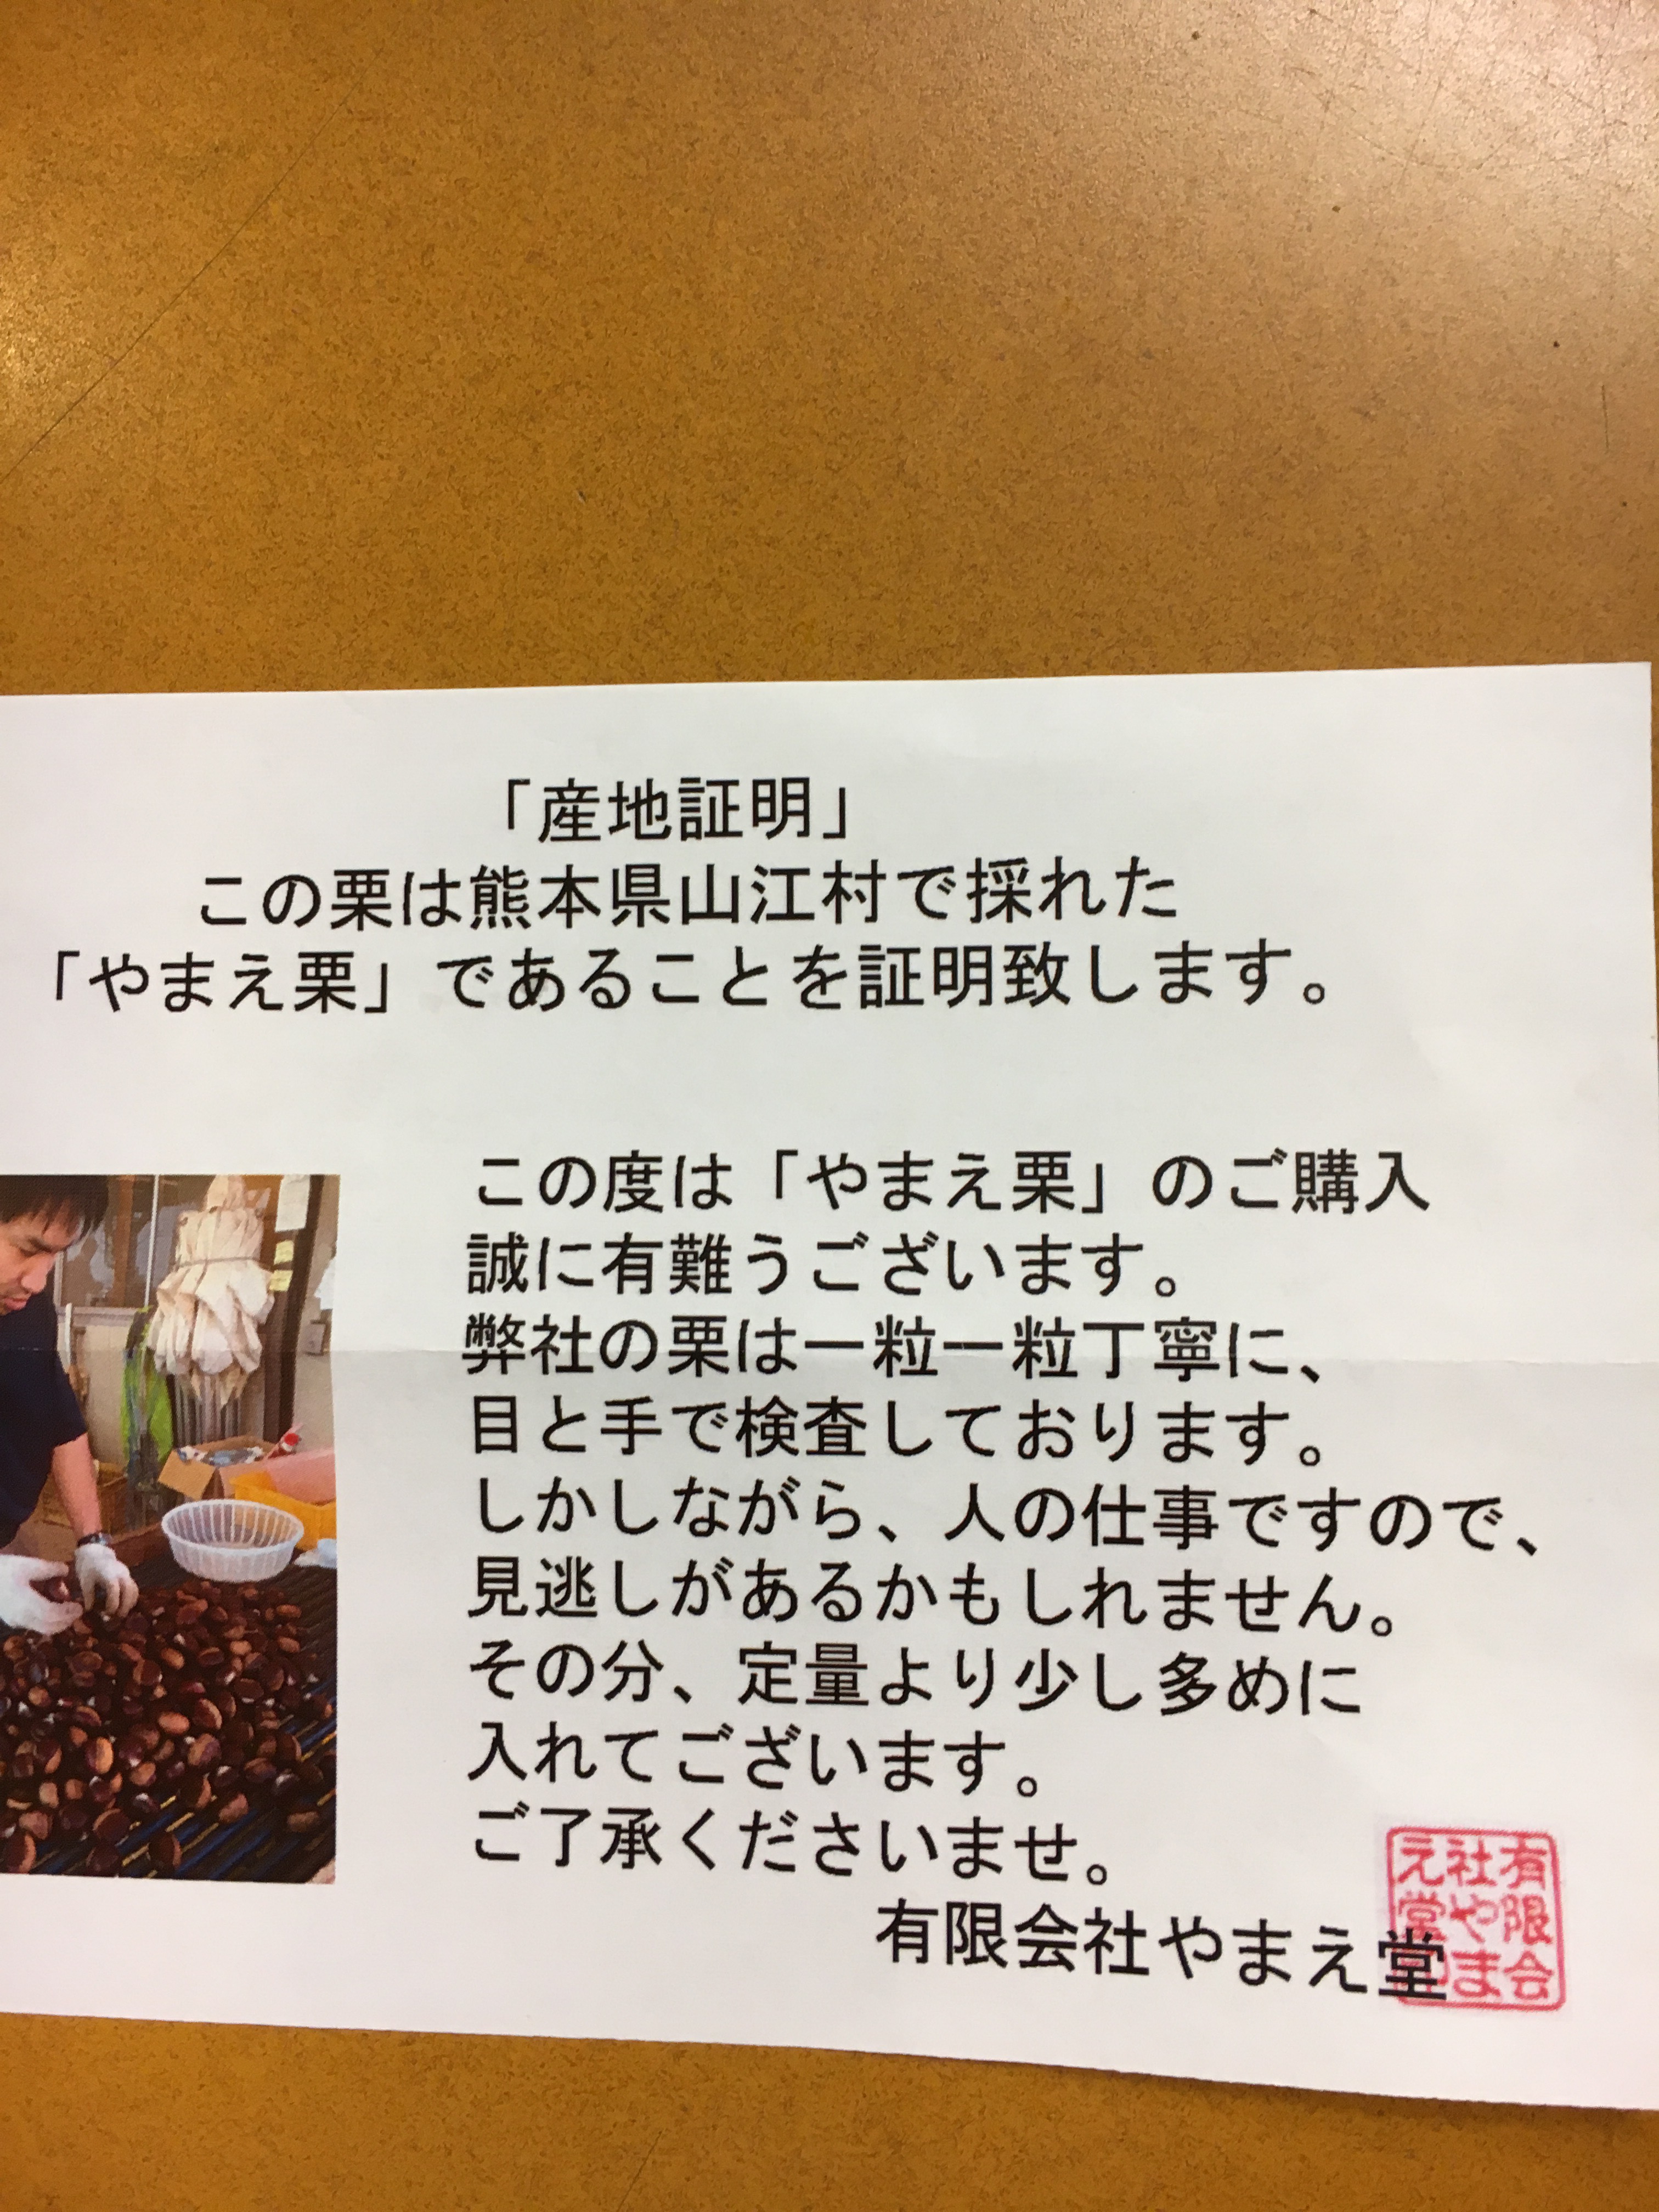 「産地証明」
この栗は熊本県山江村で採れた
「やまえ栗」であることを証明致します。
この度は「やまえ栗」のご購入
誠に有難うございます。
弊社の栗は一粒一粒丁寧に、
目と手で検査しております。
しかしながら、人の仕事ですので、
見逃しがあるかもしれません。
その分、定量より少し多めに
入れてございます。
ご了承くださいませ。
有限会社やまえ堂
有限会
社やま
え堂